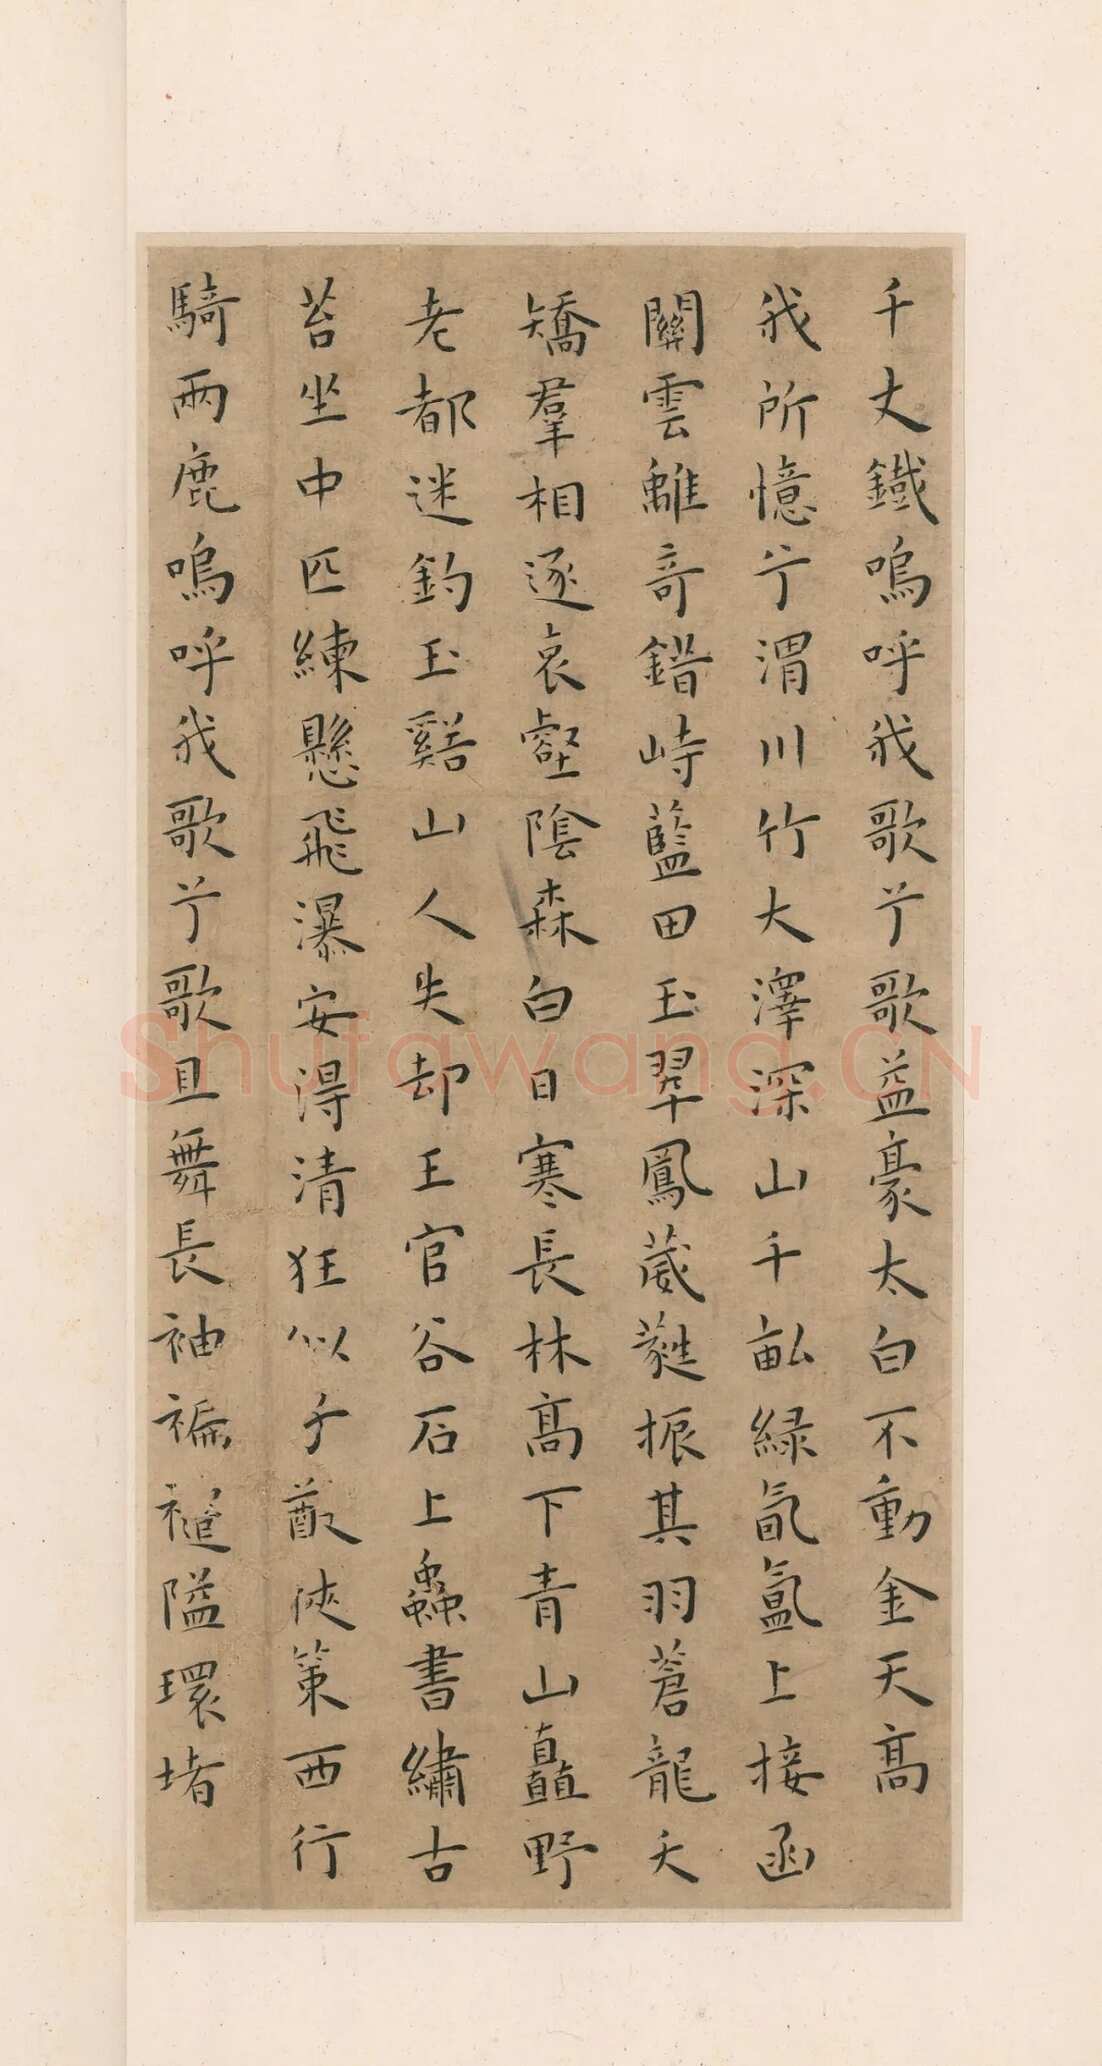 千丈鐵嗚呼我歌兮歌益豪太白不動金天高
我所憶兮渭川竹大澤深山千畝綠氤氳上接函
關雲離奇錯峙藍田玉翠鳳葳蕤振其羽蒼龍夭
矯羣相逐哀壑陰森白日寒長林高下青山矗野
老都迷釣玉谿山人失却王官谷石上蟲書繡古
苔坐中匹練懸飛瀑安得清狂似子猷俠策西行
騎兩鹿嗚呼我歌兮歌且舞長袖褊𧞤隘環堵
Shufawang.CN